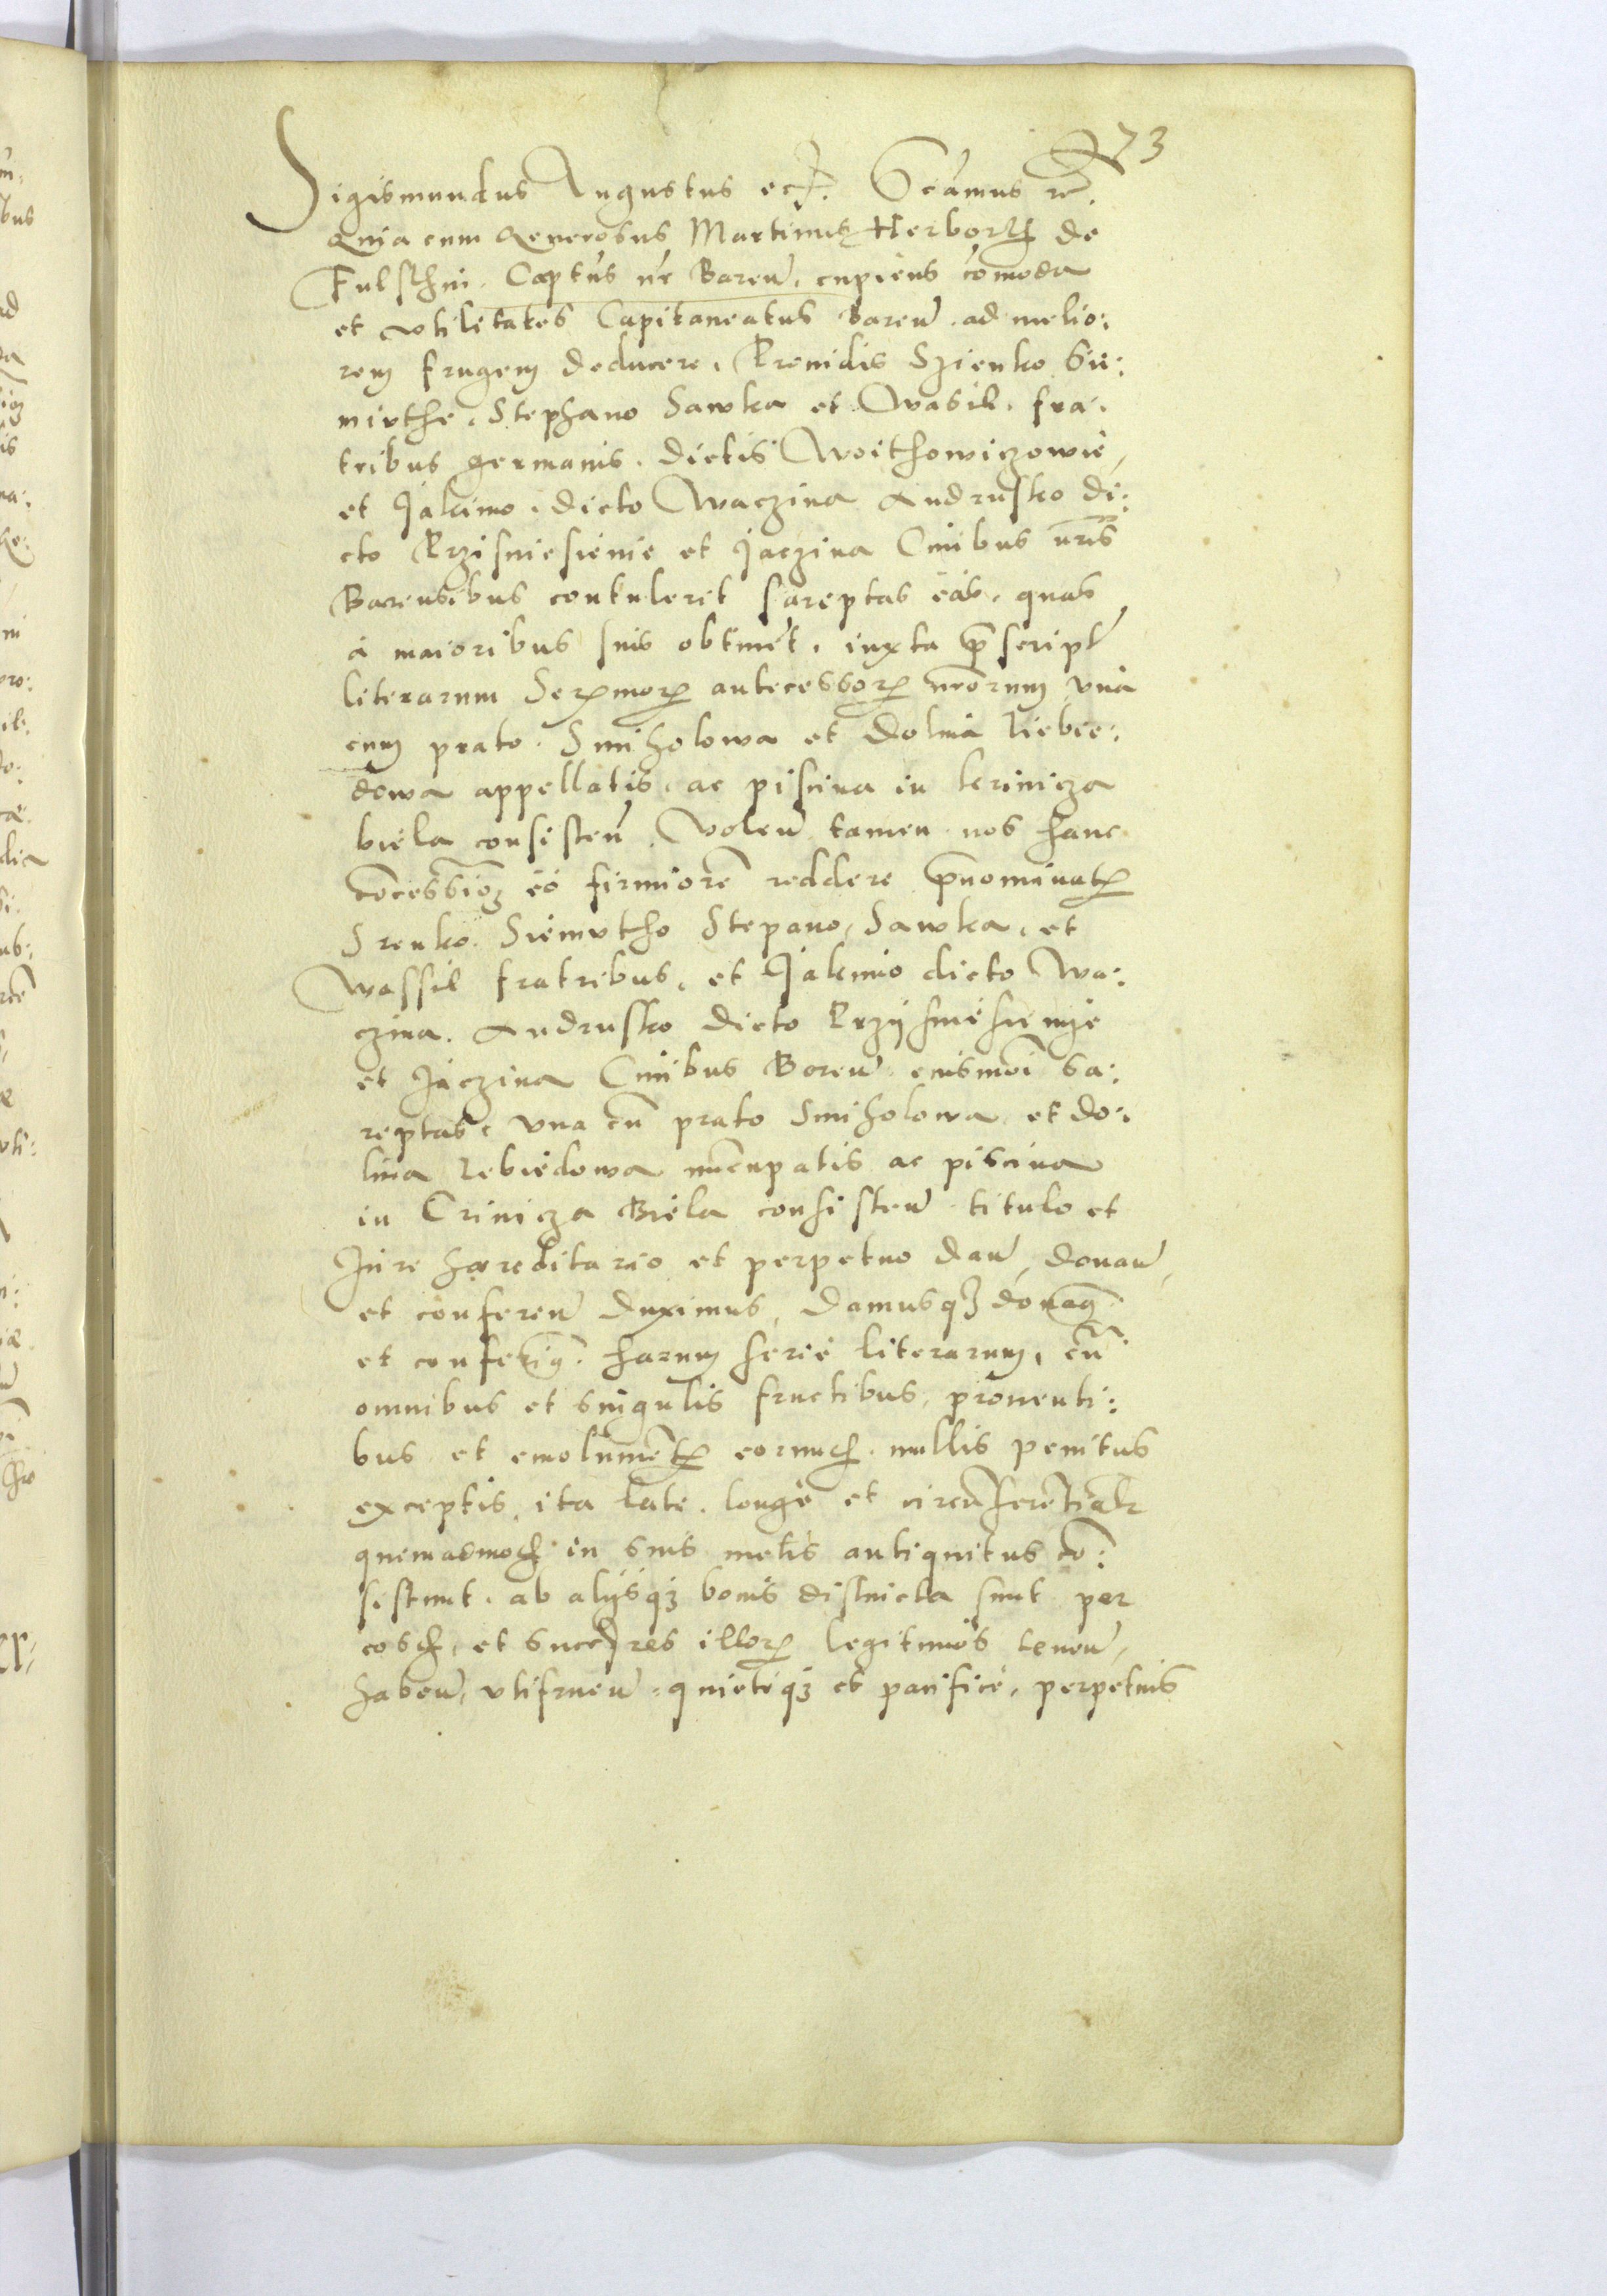 273
Sigismundus Augustus etc. Scamus re.
Quia cum Generosus Martinus Herborth de
Fulschin. Captus nr Baren. cupiens comoda
et vtilitates Capitaneatus Baren. ad melio:
rem frugem deducere. Prouidis Szienko Sie:
mirthe. Stephano Sawka et Wasil. fra.
tribus germanis. dictis Woithowiczowie,
et Jakimo. dicto Waczina Andrusko di:
cto Przisniesienie et Jaczina Ciuibus nris
Barensibus contulerit sareptas eas. quas
a maioribus suis obtinet. iuxta pscript
literarum Sermor antecessor nrorum vna
cum prato. Smiholowa et dolina Liebie:
dowa appellatis. ac piscina in krinicza
biela consisten. Volen tamen nos hanc
concessioem eo firmiore reddere pnominatis
Srenko Siemvtho Stepano, Sawka, et
Wassil fratribus, et Jakimo dicto Wa:
czina. Andrusko dicto Przysniesienye
et Jaczina Ciuibus Boren. eiusmoi sa:
reptas, vna cu prato Smiholowa et do:
lina Lebiedowa nucupatis ac piscina
in Crinicza Biela consisten titulo et
Jure hæreditario et perpetuo dan, donan,
et conferen duximus, Damusq donaq
et conferimq. harum serie literarum, cu
omnibus et singulis fructibus, prouenti:
bus et emolumetis eorund. nullis penitus
exceptis, ita late. longe et circuferetialr
quemadmod in suis metis antiquitus co:
sistunt. ab alijsq bonis distincta sunt per
eosd, et succres illor legitimos tenen,
haben, vtifruen. quieteq et pacifice, perpetuis